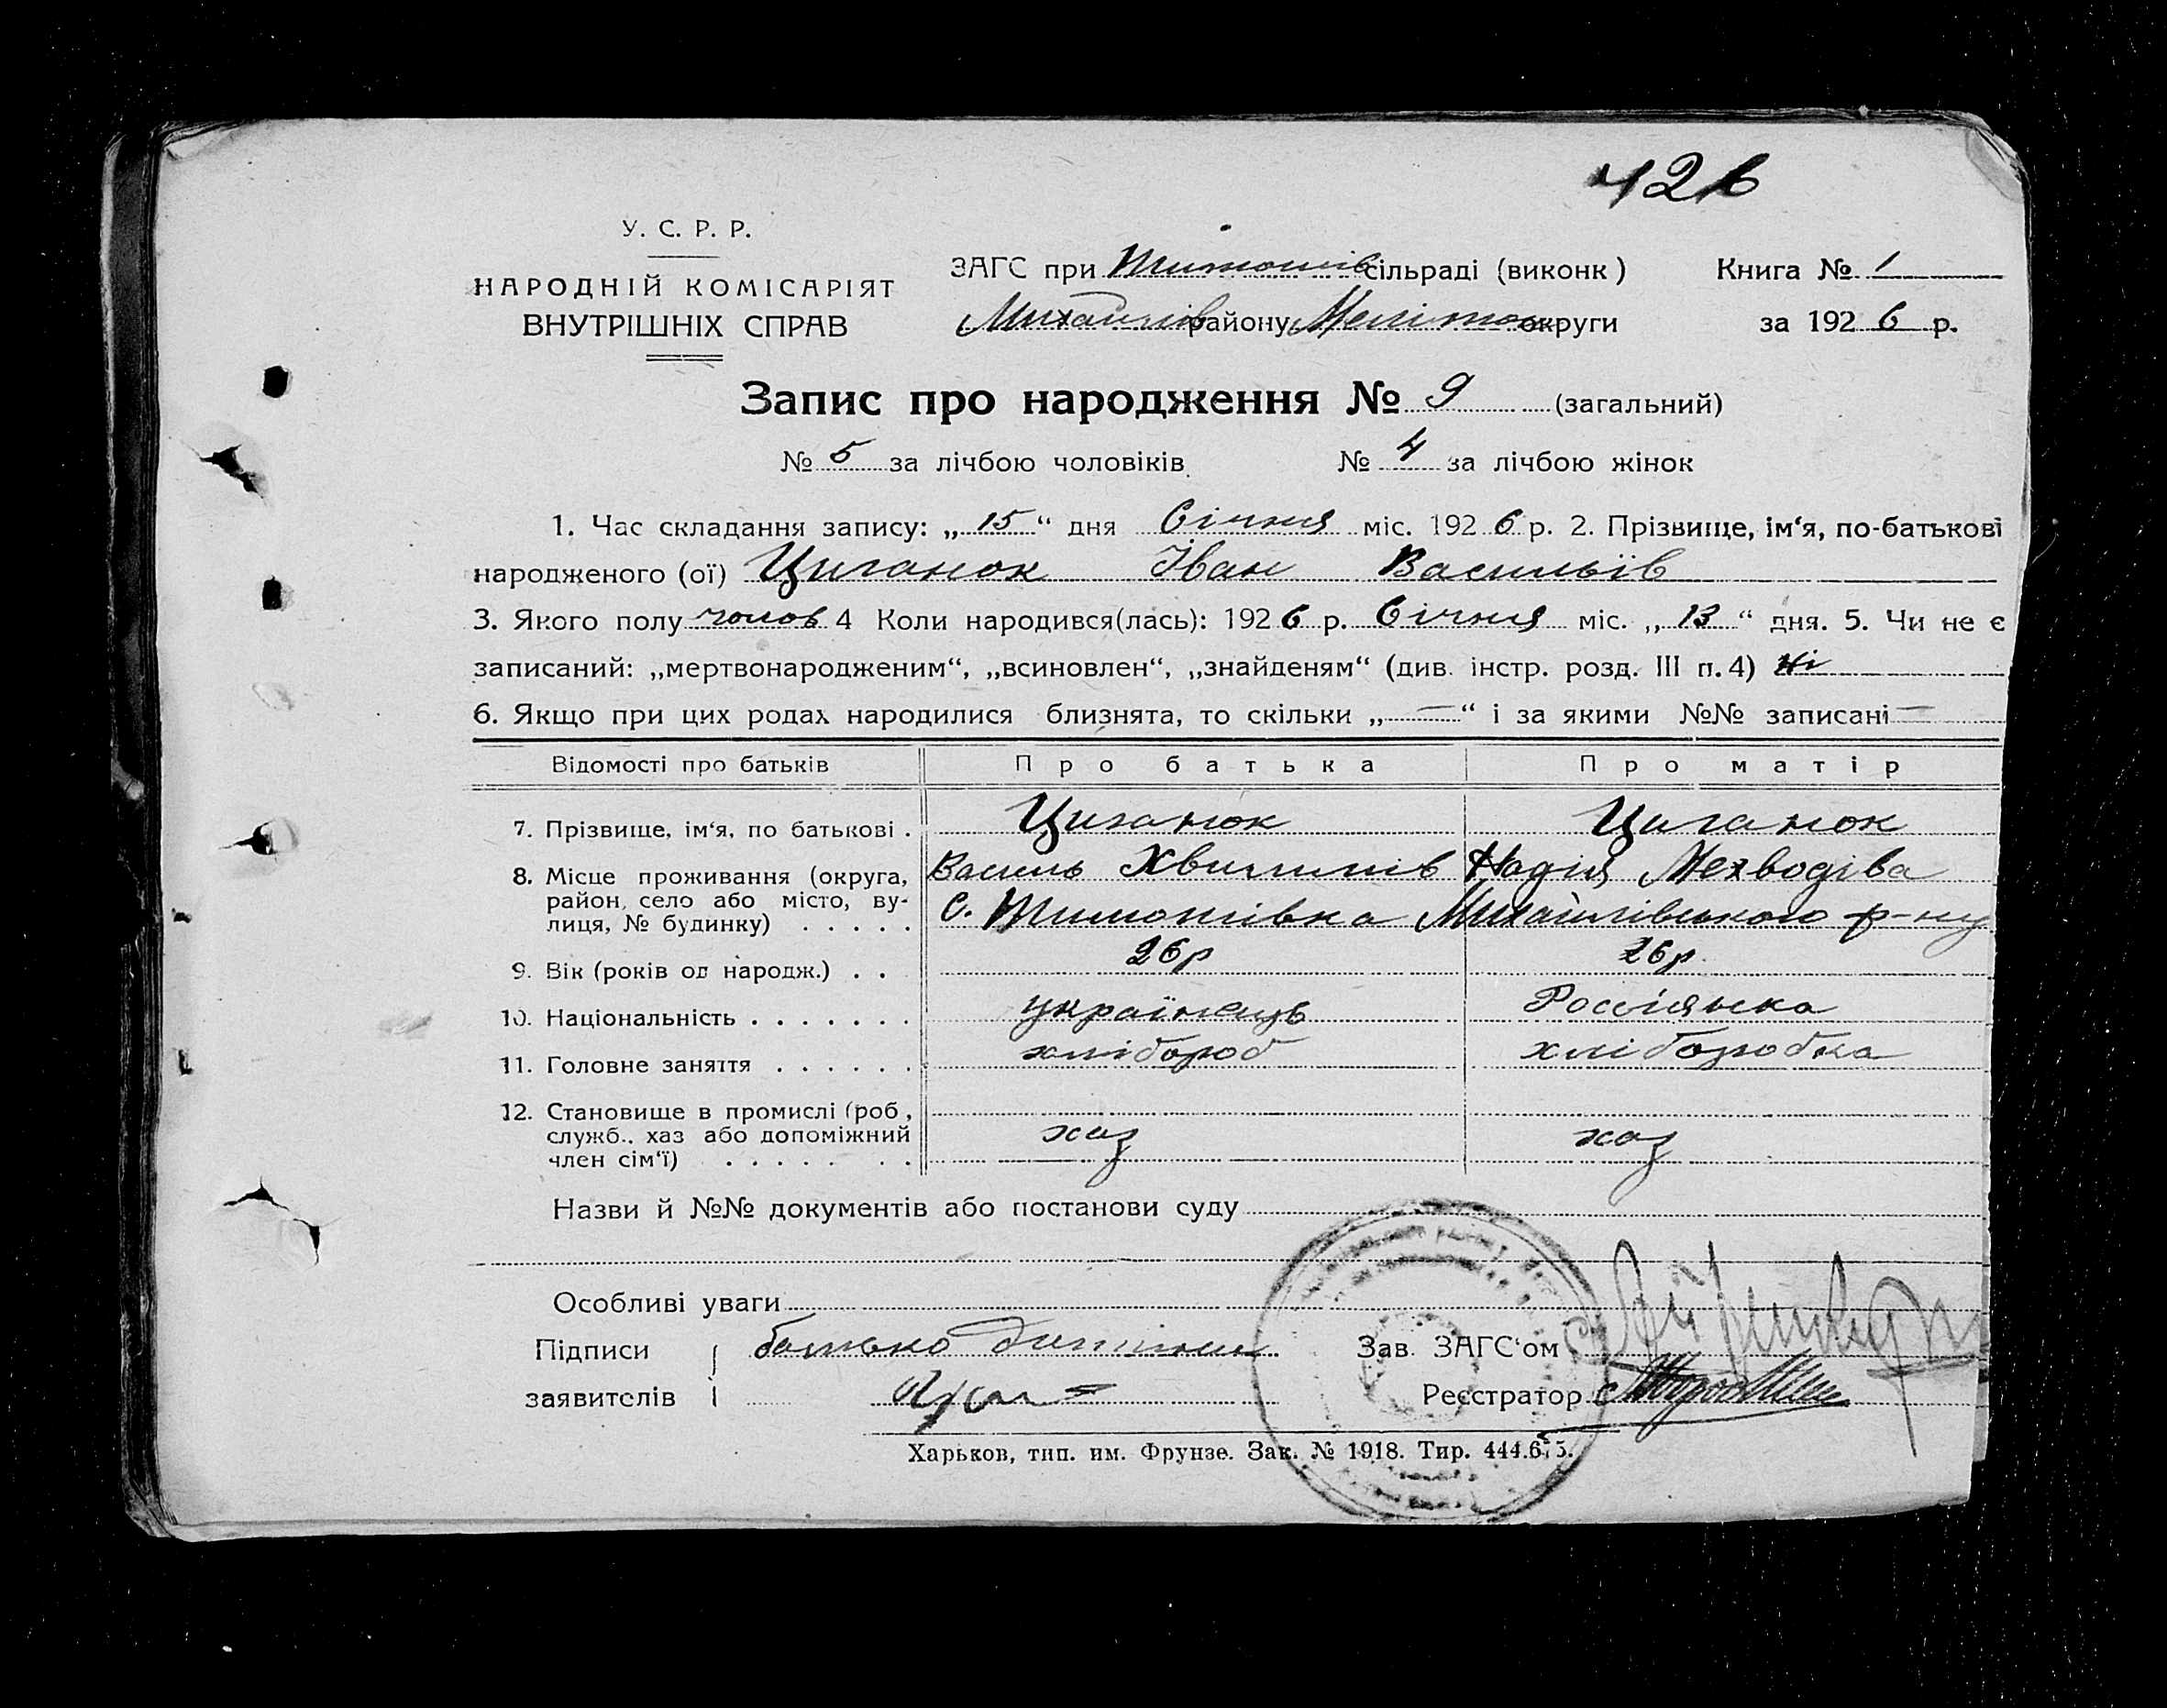 426
У. С. Р. Р.
НАРОДНІЙ КОМІСАРІЯТ
ВНУТРІШНІХ СПРАВ
ЗАГС при Тимошів сільраді (виконк) Книга № 1
Михайлів району Меліт округи за 1926 р.
Запис про народження № 9 (загальний)
№ 5 за лічбою чоловіків. № 4 за лічбою жінок
1. Час складання запису: „15“ дня Січня міс. 1926 р. 2. Прізвище, ім‘я, по-батькові
народженого (ої) Циганок Іван Васильїв
3. Якого полу чолов 4 Коли народився(лась): 1926 р. Січня міс. „13“ дня. 5. Чи не є
записаний: „мертвонародженим“, „всиновлен“, „знайденям“ (див. інстр. розд. III п. 4) Ні
6. Якщо при цих родах народилися близнята, то скільки „—“ і за якими №№ записані —
Відомості про батьків Про батька Про матір
7. Прізвище, ім‘я, по батькові . Циганок Циганок
Василь Хвилипів Надія Мехводіва
8. Місце проживання (округа, район, село або місто, вулиця, № будинку) . . . . . с. Тимошівка Михайлівського р-ну
9. Вік (років од народж.) . . 26р 26р.
10. Національність . . . . . . . українець Россіянка
11. Головне заняття . . . . . . хлібороб хліборобка
12. Становище в промислі (роб, служб., хаз або допоміжний член сім‘ї) . . . . . . . хаз хаз
Назви й №№ документів або постанови суду
Особливі уваги
Підписи батько дитини Зав. ЗАГС‘ом
заявителів Реєстратор
Харьков, тип. им. Фрунзе. Зак. № 1918. Тир. 444.675.